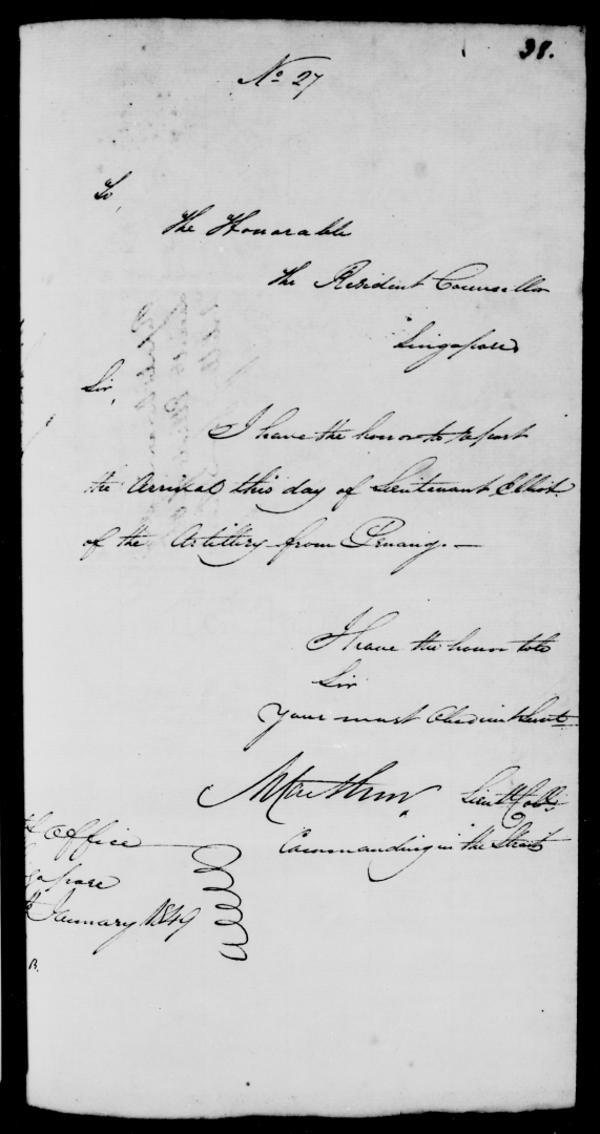 38.
No 27
To,
The Honorable
the Resident Councellor
Singapore
Sir,
I have the honor to report
the Arrival this day of Lieutenant Elliot
of the Artillery from Penang. —
I have the honor to be
Sir
Your most Obedient Servt
Lieut Coll
Commanding in the Straits
Office
apore
January 1849
B.